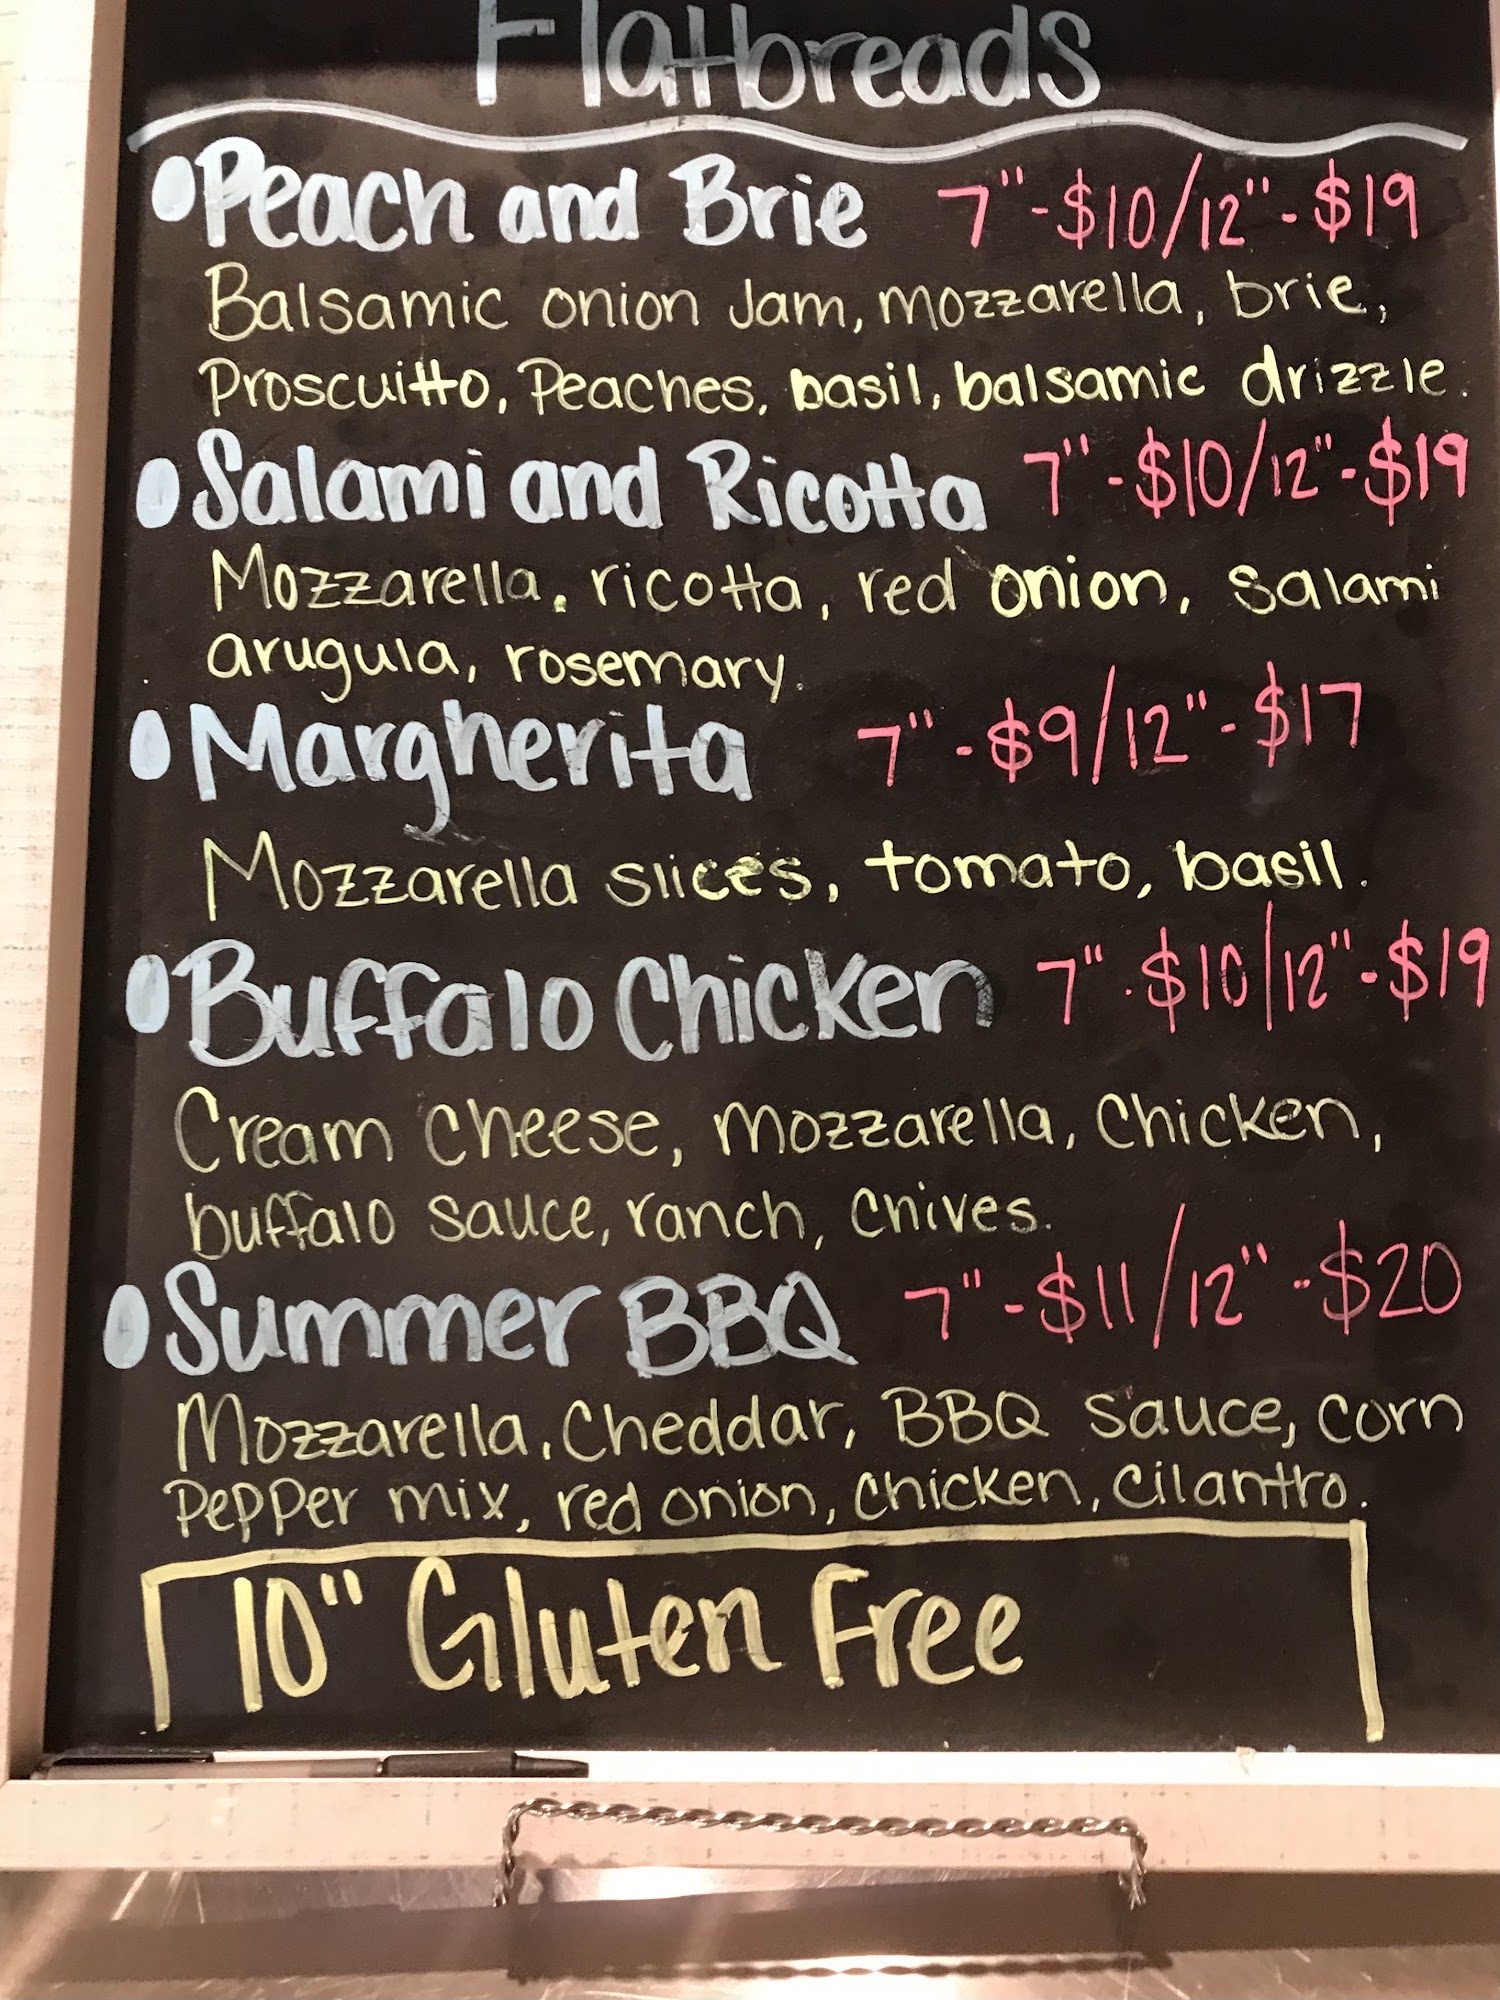 Flatbreads
Peach and Brie 7"-$10/12"-$19
Balsamic onion Jam, mozzarella, brie,
Proscuitto, Peaches, basil, balsamic drizzle.
Salami and Ricotta 7"-$10/12"-$19
Mozzarella, ricotta, red onion, salami
arugula, rosemary.
Margherita 7"-$9/12"-$17
Mozzarella slices, tomato, basil.
Buffalo Chicken 7"-$10/12"-$19
Cream cheese, mozzarella, Chicken,
buffalo sauce, ranch, chives.
Summer BBQ 7"-$11/12"-$20
Mozzarella, Cheddar, BBQ sauce, corn
Pepper mix, red onion, chicken, cilantro.
10" Gluten Free